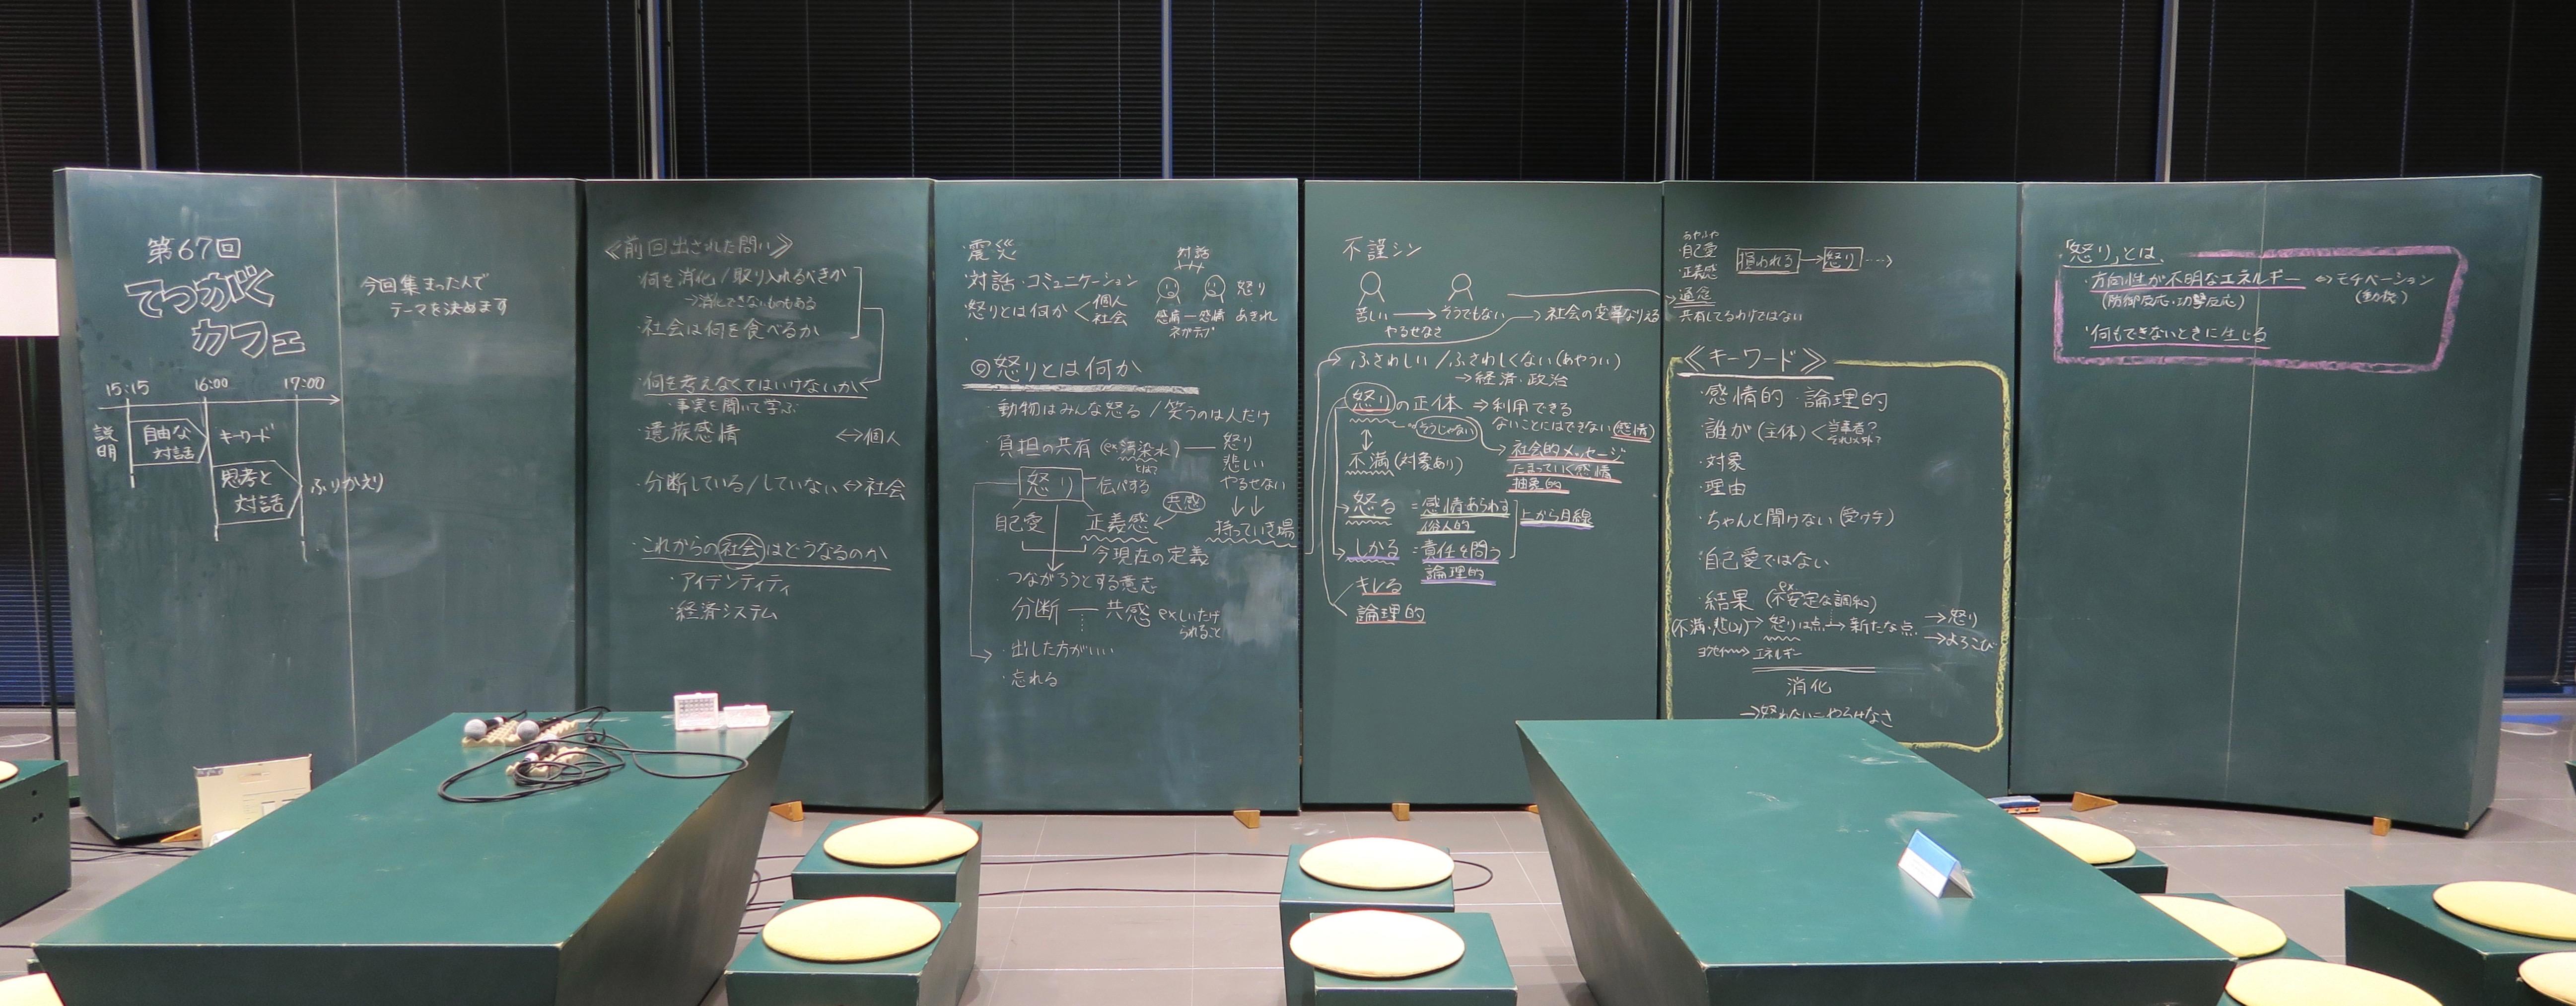 第67回
てつがく
カフェ
15:15 16:00 17:00
説明
自由な
対話
キーワード
思考と
対話
ふりかえり
今回集まった人で
テーマを決めます
≪前回出された問い≫
・何を消化/取り入れるべきか
→消化できないものもある
・社会は何を食べるか
・何を考えなくてはいけないか
・事実を聞いて学ぶ
・遺族感情 ⇔個人
・分断している/していない⇔社会
・これからの社会はどうなるのか
・アイデンティティ
・経済システム
・震災
・対話・コミュニケーション
・怒りとは何か<個人
社会
対話
感情―感情
ネガティブ
怒り
あきれ
◎怒りとは何か
・動物はみんな怒る/笑うのは人だけ
・負担の共有(ex汚染水)―怒り
とは?
悲しい
やるせない
↓↓
持っていき場
怒り―伝パする
自己愛 正義感 ← 共感
今現在の定義
・つながろうとする意志
分断―共感 exしいたげ
られること
・出した方がいい
・忘れる
不謹シン
苦しい→そうでもない
やるせなさ
→社会の変革なりえる
→ふさわしい/ふさわしくない(あやうい)
→経済・政治
怒りの正体⇒利用できる
そうじゃない
ないことにはできない(感情)
不満(対象あり)
→社会的メッセージ
たまっていく感情
抽象的
怒る=感情あらわす
個人的
しかる=責任を問う
論理的
上から目線
キレる
論理的
あやふや
・自己愛
・正義感
損われる→怒り…>
→通念
共有してるわけではない
≪キーワード≫
・感情的・論理的
・誰が(主体)<当事者?
それ以外?
・対象
・理由
・ちゃんと聞けない(受け手)
・自己愛ではない
・結果(ex不安定な調和)
(不満、悲しい)→怒りは点→新たな点
→怒り
→よろこび
ヨクセイ→エネルギー
消化
→怒れない=やるせなさ
「怒り」とは、
・方向性が不明なエネルギー⇔モチベーション
(防御反応・攻撃反応) (動機)
・何もできないときに生じる